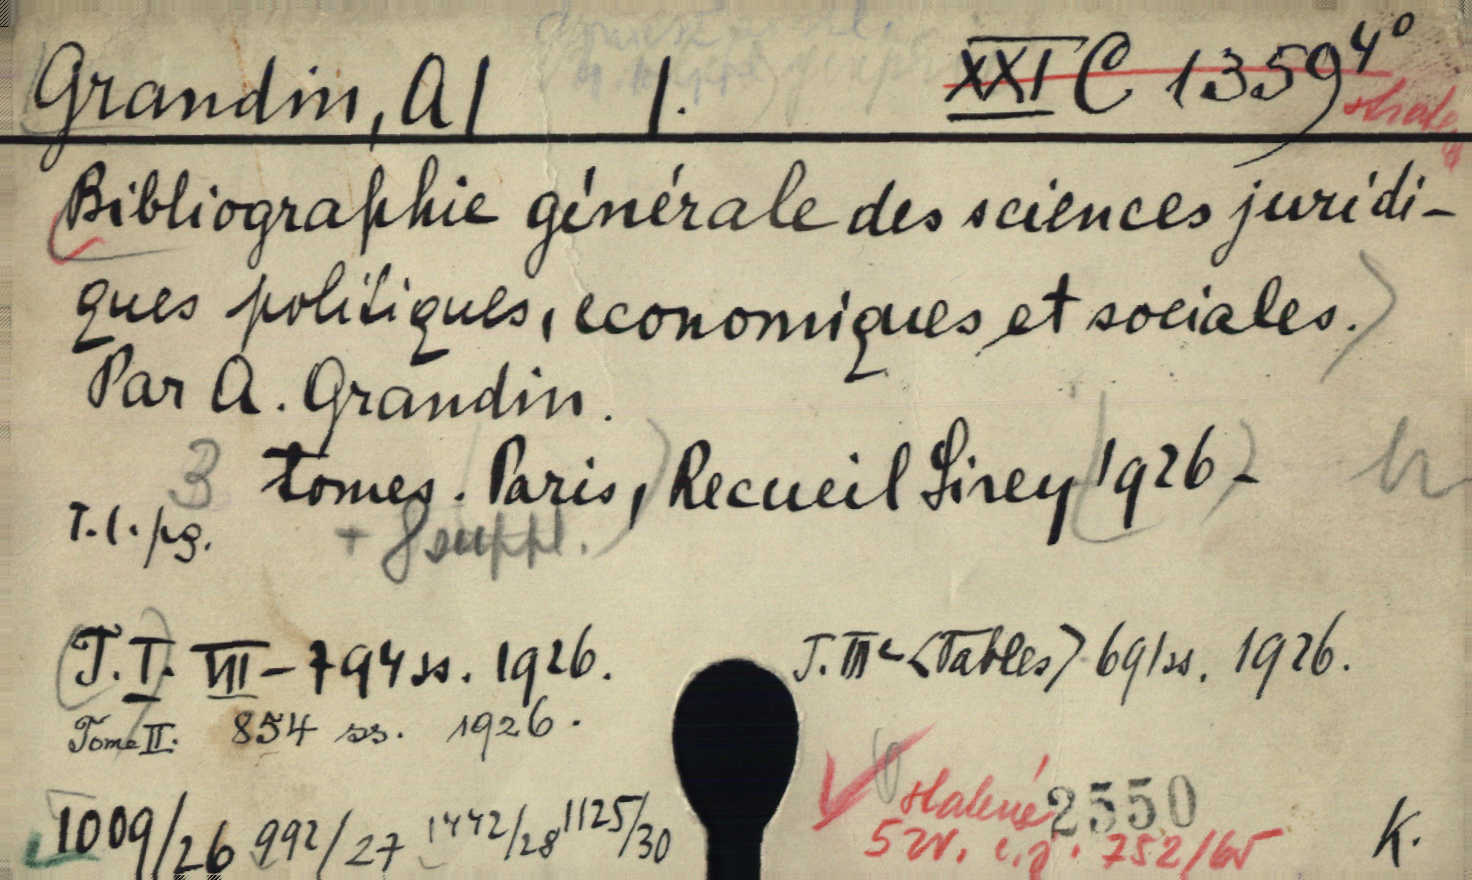 Grandin, A / 1. XXI C 1359 4°
Bibliographie générale des sciences juridi-
ques politiques, economiques et sociales.
Par A. Grandin.
3 tomes. Paris, Recueil Sirey 1926-
T.l. pg. + 8 suppl.
T. I. VIII - 794 ss. 1926. T. III <Tables> 691 ss. 1926.
Tome II. 854 ss. 1926.
1009/26 992/27 1442/28 1125/30 2550 K.
5 zv. 752/65